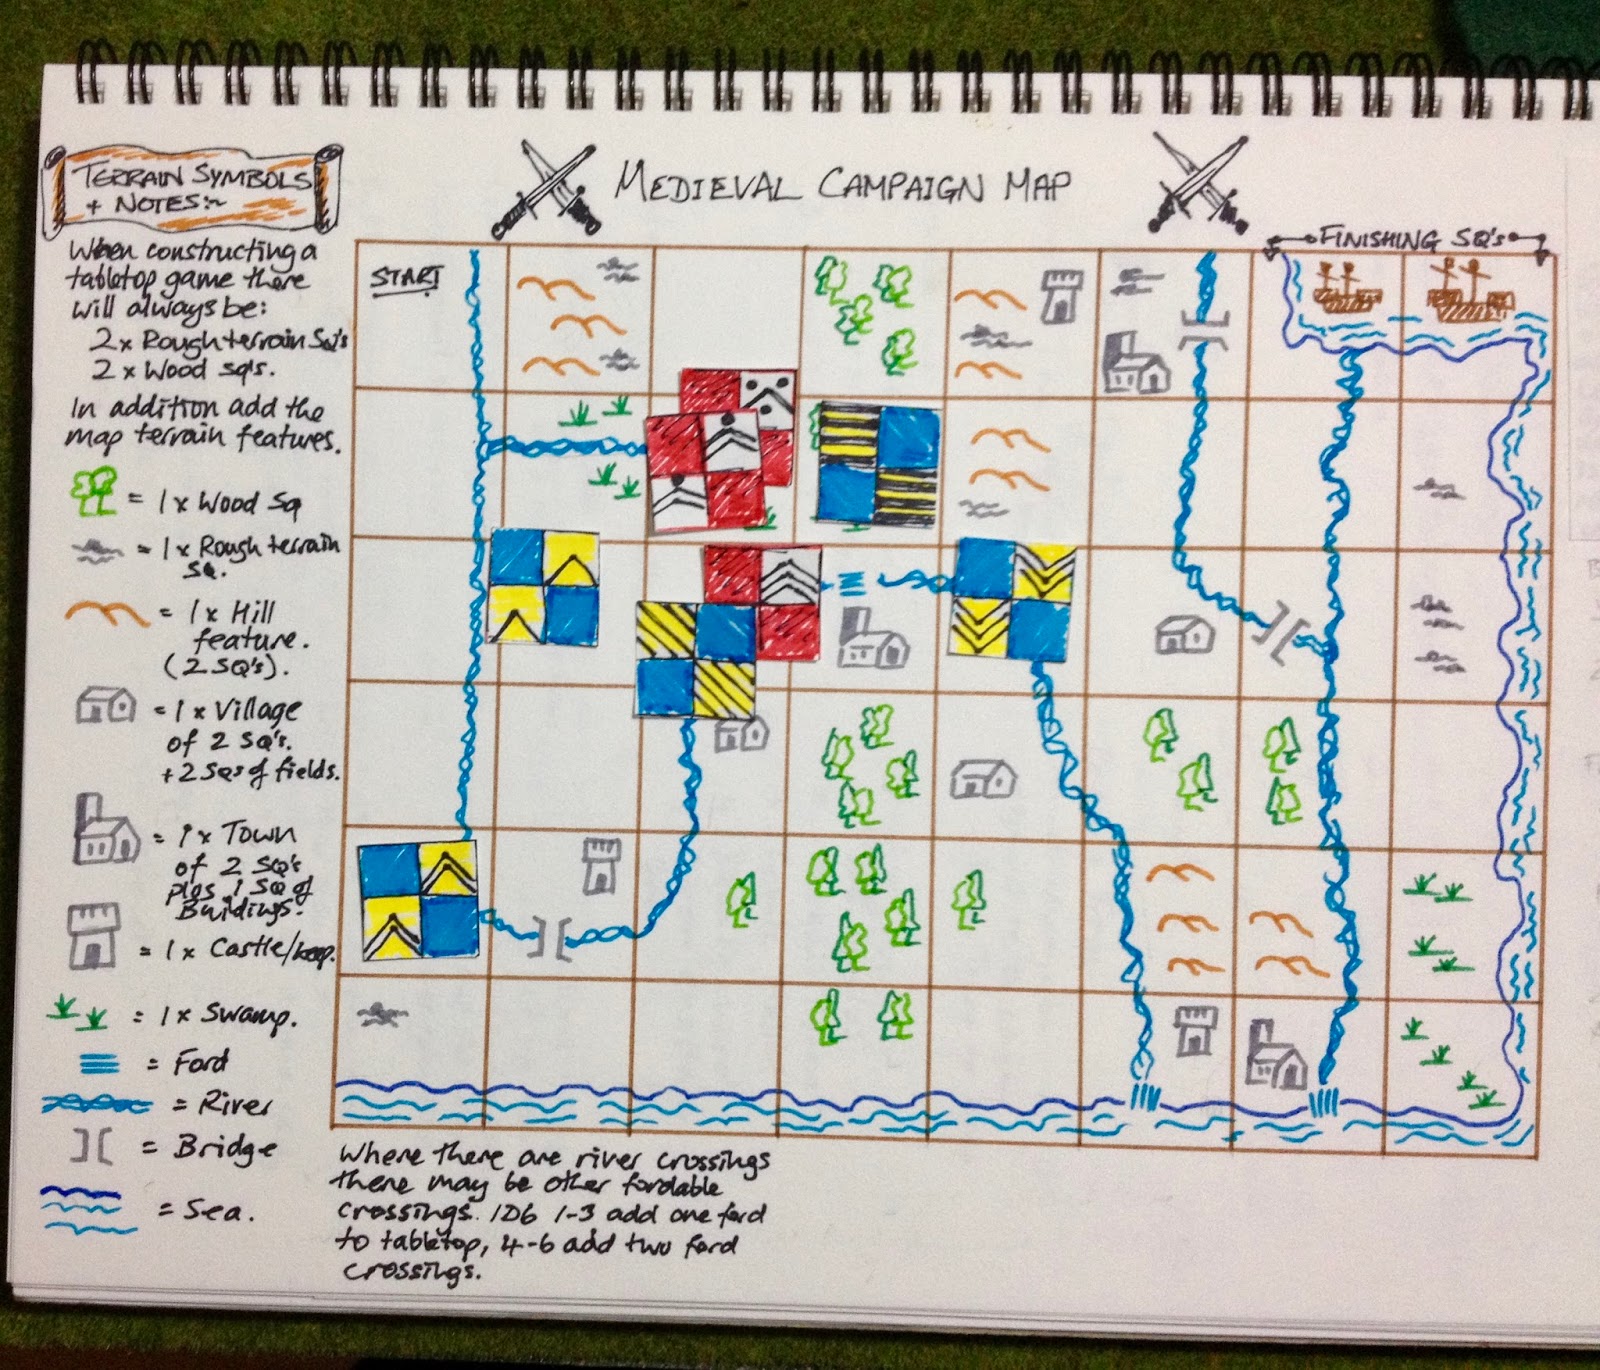 TERRAIN SYMBOLS
+ NOTES:~
MEDIEVAL CAMPAIGN MAP
FINISHING SQ's
START
When constructing a
tabletop game there
will always be:
2 x Rough terrain SQ's
2 x Wood sq's.
In addition add the
map terrain features.
= 1 x Wood Sq
= 1 x Rough terrain
SQ.
= 1 x Hill
feature.
(2 SQ's).
= 1 x Village
of 2 SQ's.
+ 2 SQs of fields.
= 1 x Town
of 2 SQ's
plus 1 SQ of
Buildings.
= 1 x Castle/keep.
= 1 x Swamp.
= Ford
= River
= Bridge
= Sea.
Where there are river crossings
there may be other fordable
crossings. 1D6 1-3 add one ford
to tabletop, 4-6 add two ford
crossings.